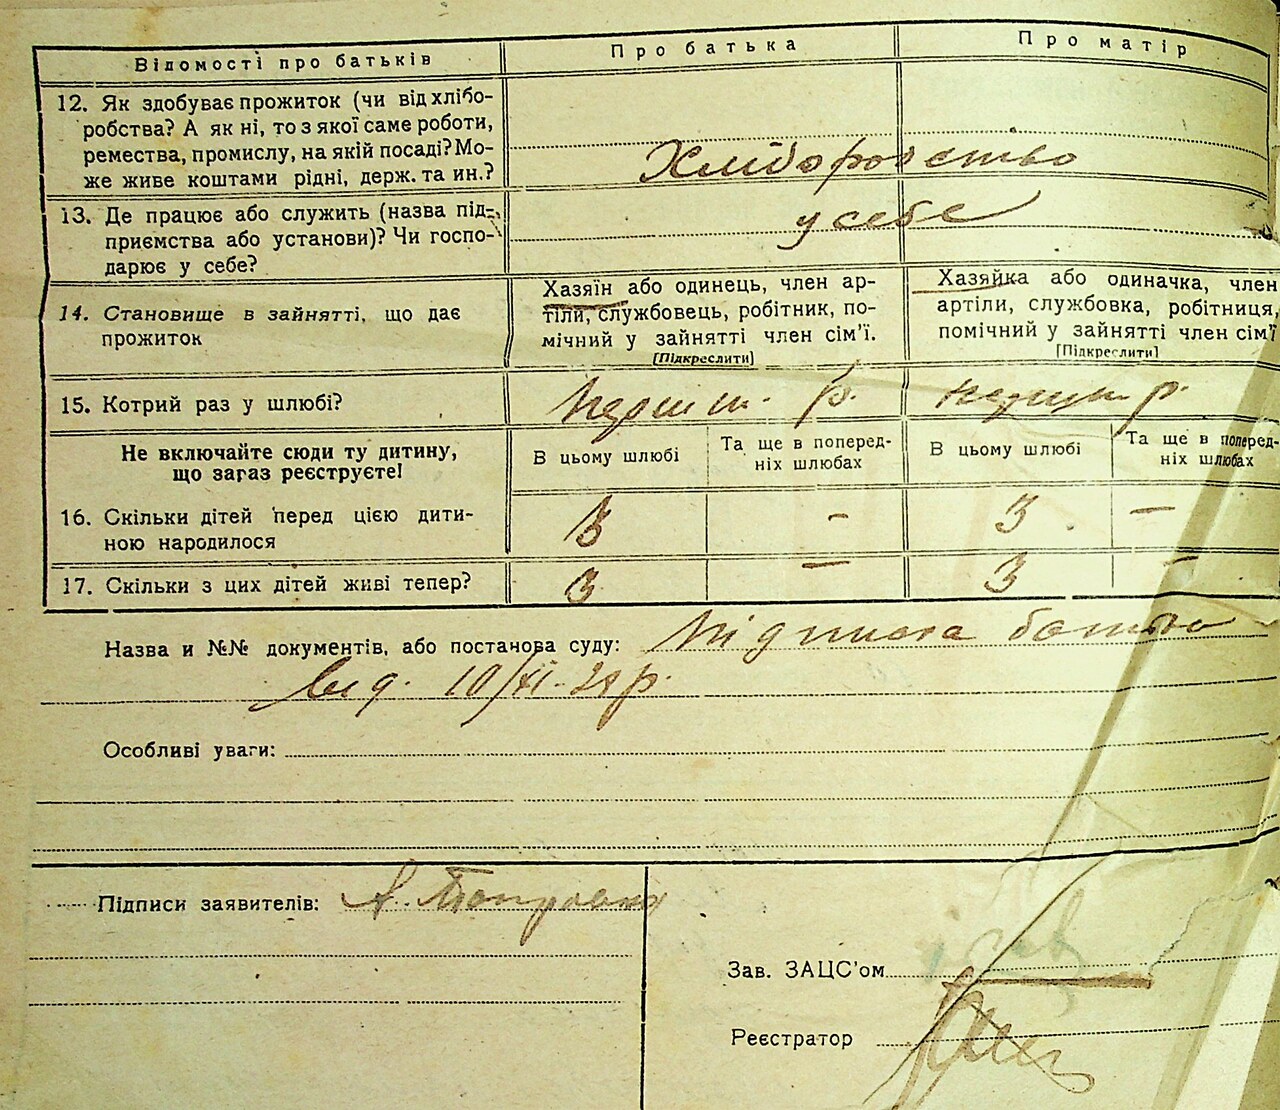 Відомості про батьків
Про батька
Про матір
12. Як здобуває прожиток (чи від хлібо-
робства? А як ні, то з якої саме роботи,
ремества, промислу, на якій посаді? Мо-
же живе коштами рідні, держ. та ин.?
Хліборобство
13. Де працює або служить (назва під-
приємства або установи)? Чи госпо-
дарює у себе?
у себе
14. Становище в зайнятті, що дає
прожиток
Хазяїн або одинець, член ар-
тіли, службовець, робітник, по-
мічний у зайнятті член сім'ї.
[Підкреслити]
Хазяйка або одиначка, член
артіли, службовка, робітниця,
помічний у зайнятті член сім'ї
[Підкреслити]
15. Котрий раз у шлюбі?
перший р.
перший р.
Не включайте сюди ту дитину,
що загаз реєструєте!
В цьому шлюбі
Та ще в поперед-
ніх шлюбах
В цьому шлюбі
Та ще в поперед-
ніх шлюбах
16. Скільки дітей перед цією дити-
ною народилося
3
-
3
-
17. Скільки з цих дітей живі тепер?
3
-
3
-
Назва и №№ документів, або постанова суду: підписка батька
від. 10/XI-29 р.
Особливі уваги:
Підписи заявителів: А.
Зав. ЗАЦС'ом
Реєстратор